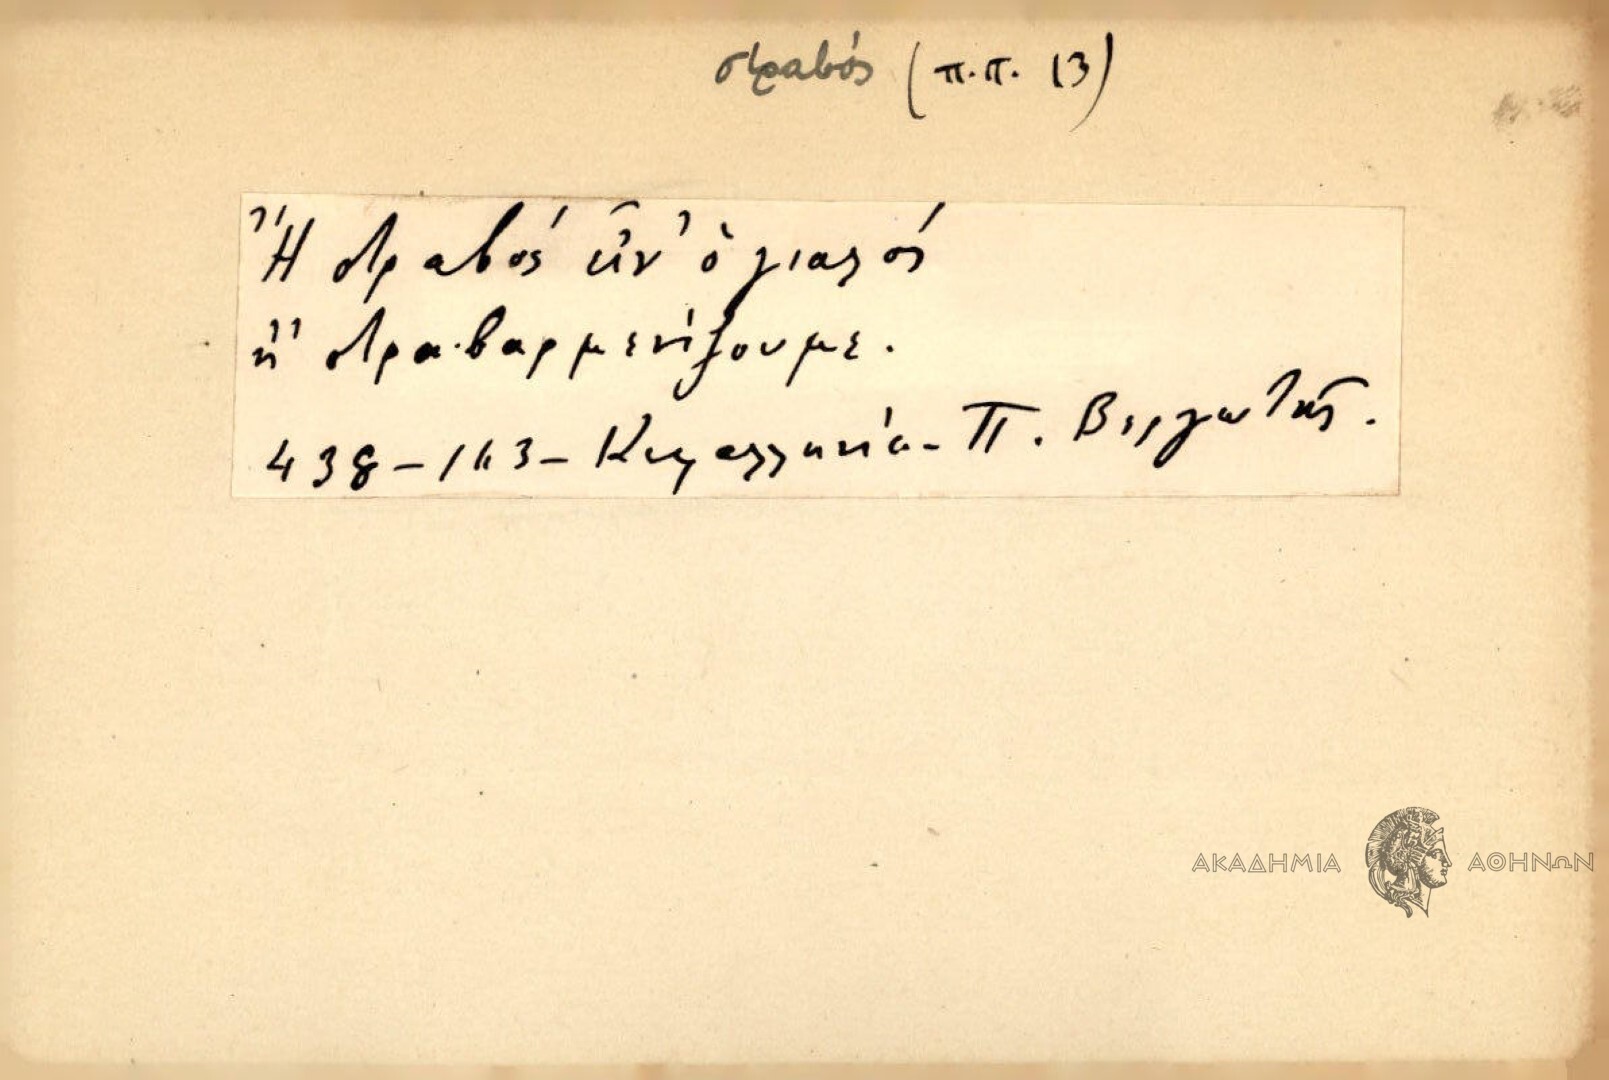 στραβός (π.π. 13)
Ἢ στραβός εἶν' ὁ γιαλός
ἢ στραβαρμενίζουμε.
438 - 113 - Κεφαλληνία - Π. Βεργωτῆς.
ΑΚΑΔΗΜΙΑ ΑΘΗΝΩΝ